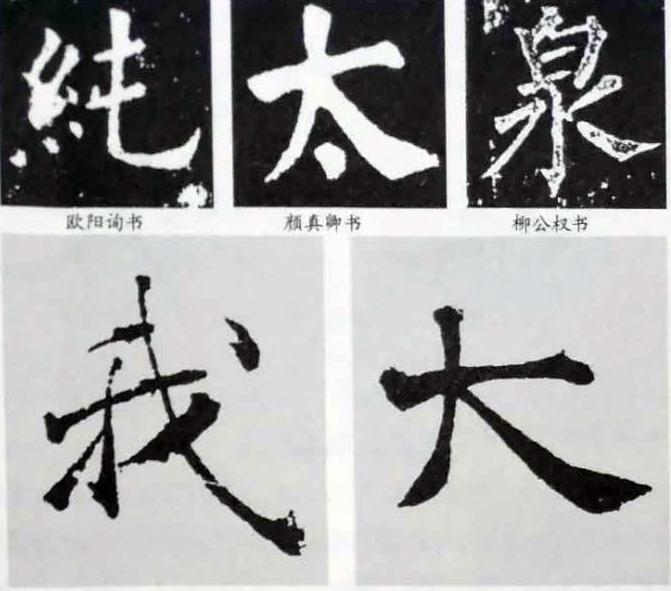 純 太 泉
欧阳询书 颜真卿书 柳公权书
我 大